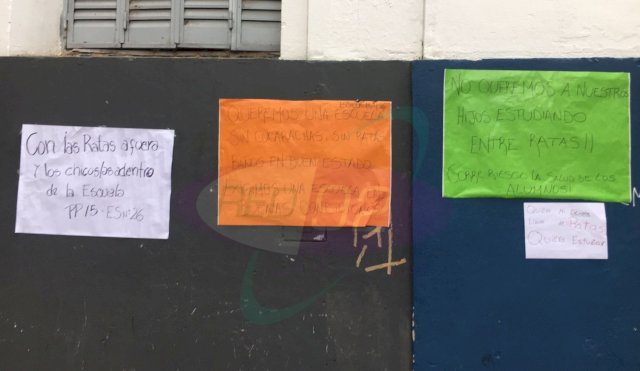 Con las Ratas afuera
y los chicos/as adentro
de la Escuela
PP15-ESN°26
QUEREMOS UNA ESCUELA
SIN CUCARACHAS, SIN RATAS
BAÑOS EN BUEN ESTADO
EXIGIMOS UNA ESCUELA EN
CONDICIONES
NO QUEREMOS A NUESTROS
HIJOS ESTUDIANDO
ENTRE RATAS!!
CORRE RIESGO LA SALUD DE LOS
ALUMNOS!
QUIERO ESTUDIAR